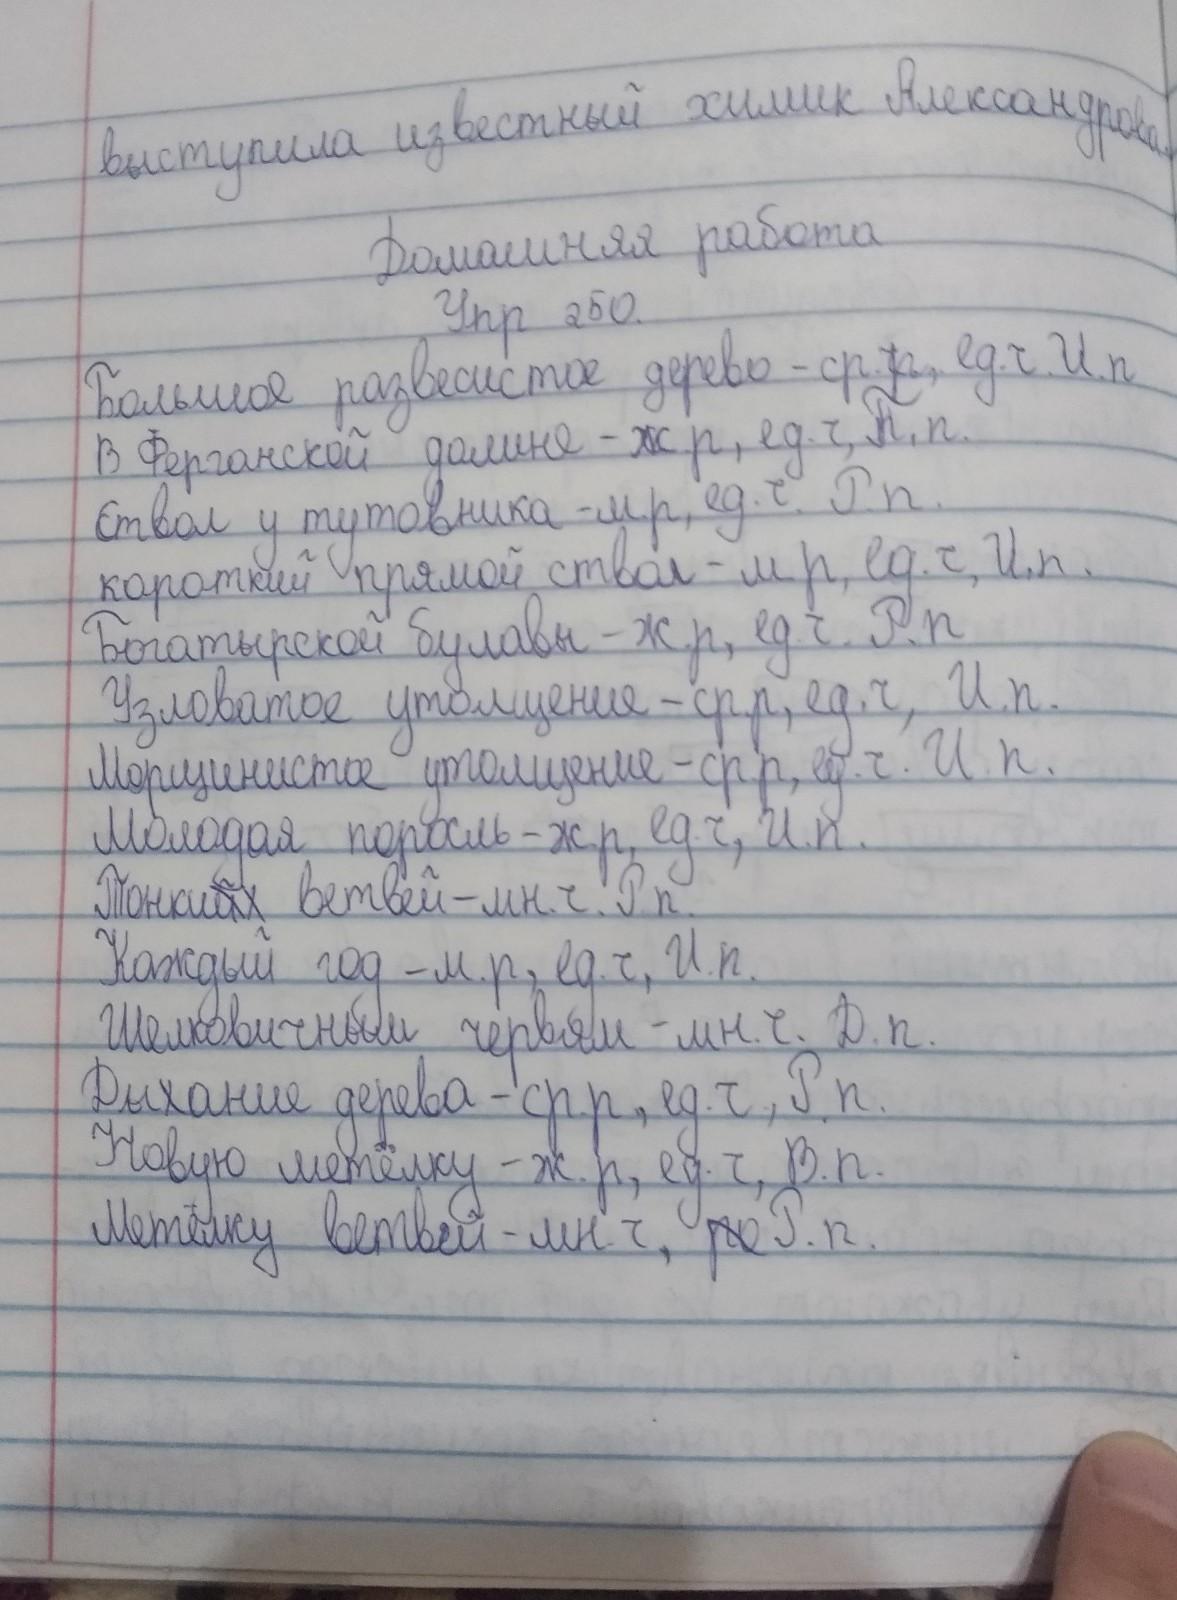 выступила известный химик Александрова.
Домашняя работа
Упр 250.
Большое развесистое дерево - ср.р, ед.ч. И.п
В Ферганской долине - ж.р, ед.ч, П.п.
Ствол у тутовника - м.р, ед.ч. Р.п.
короткий прямой ствол - м.р, ед.ч, И.п.
Богатырской булавы - ж.р, ед.ч. Р.п
Узловатое утолщение - ср.р, ед.ч, И.п.
Морщинистое утолщение - ср.р, ед.ч. И.п.
Молодая поросль - ж.р, ед.ч, И.п.
Тонких ветвей - мн.ч. Р.п.
Каждый год - м.р, ед.ч, И.п.
Шелковичным червям - мн.ч. Д.п.
Дыхание дерева - ср.р, ед.ч, Р.п.
Новую метёлку - ж.р, ед.ч, В.п.
Метёлку ветвей - мн.ч, Р.п.